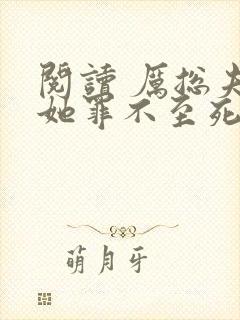 閱讀 厲總夫
她罪不至死
萌月牙